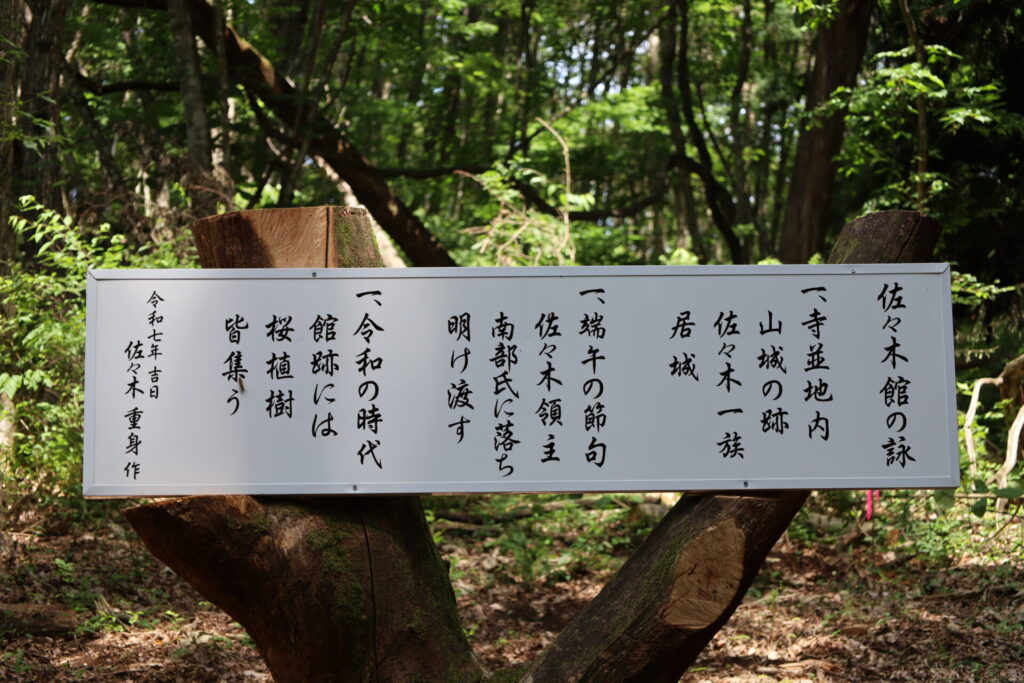 佐々木館の詠
一、寺並地内
山城の跡
佐々木一族
居城
一、端午の節句
佐々木領主
南部氏に落ち
明け渡す
一、令和の時代
館跡には
桜植樹
皆集う
令和七年吉日
佐々木重身作